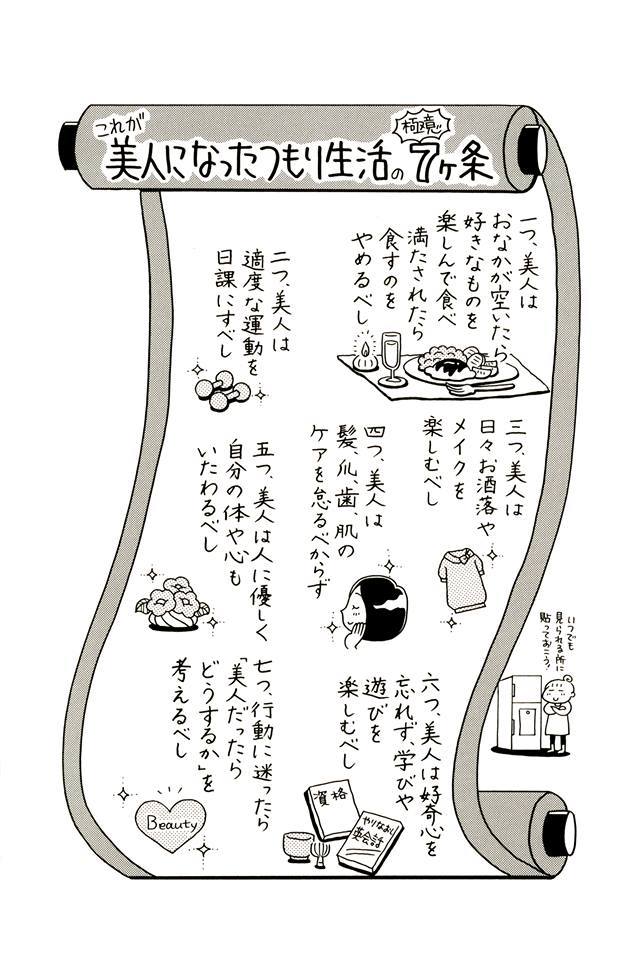 これが
美人になったつもり生活の
極意!!
7ヶ条
一つ、美人は
おなかが空いたら
好きなものを
楽しんで食べ
満たされたら
食すのを
やめるべし
二つ、美人は
適度な運動を
日課にすべし
三つ、美人は
日々お洒落や
メイクを
楽しむべし
四つ、美人は
髪、爪、歯、肌の
ケアを怠るべからず
五つ、美人は人に優しく
自分の体や心も
いたわるべし
いつでも
見られる所に
貼っておこう!
六つ、美人は好奇心を
忘れず、学びや
遊びを
楽しむべし
資格
やりなおし
英会話
七つ、行動に迷ったら
「美人だったら
どうするか」を
考えるべし
Beauty